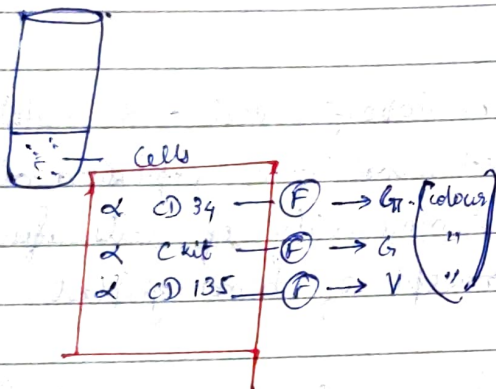 Cells
α CD 34 — F → (colour
α C kit — F → G "
α CD 135 — F → V "